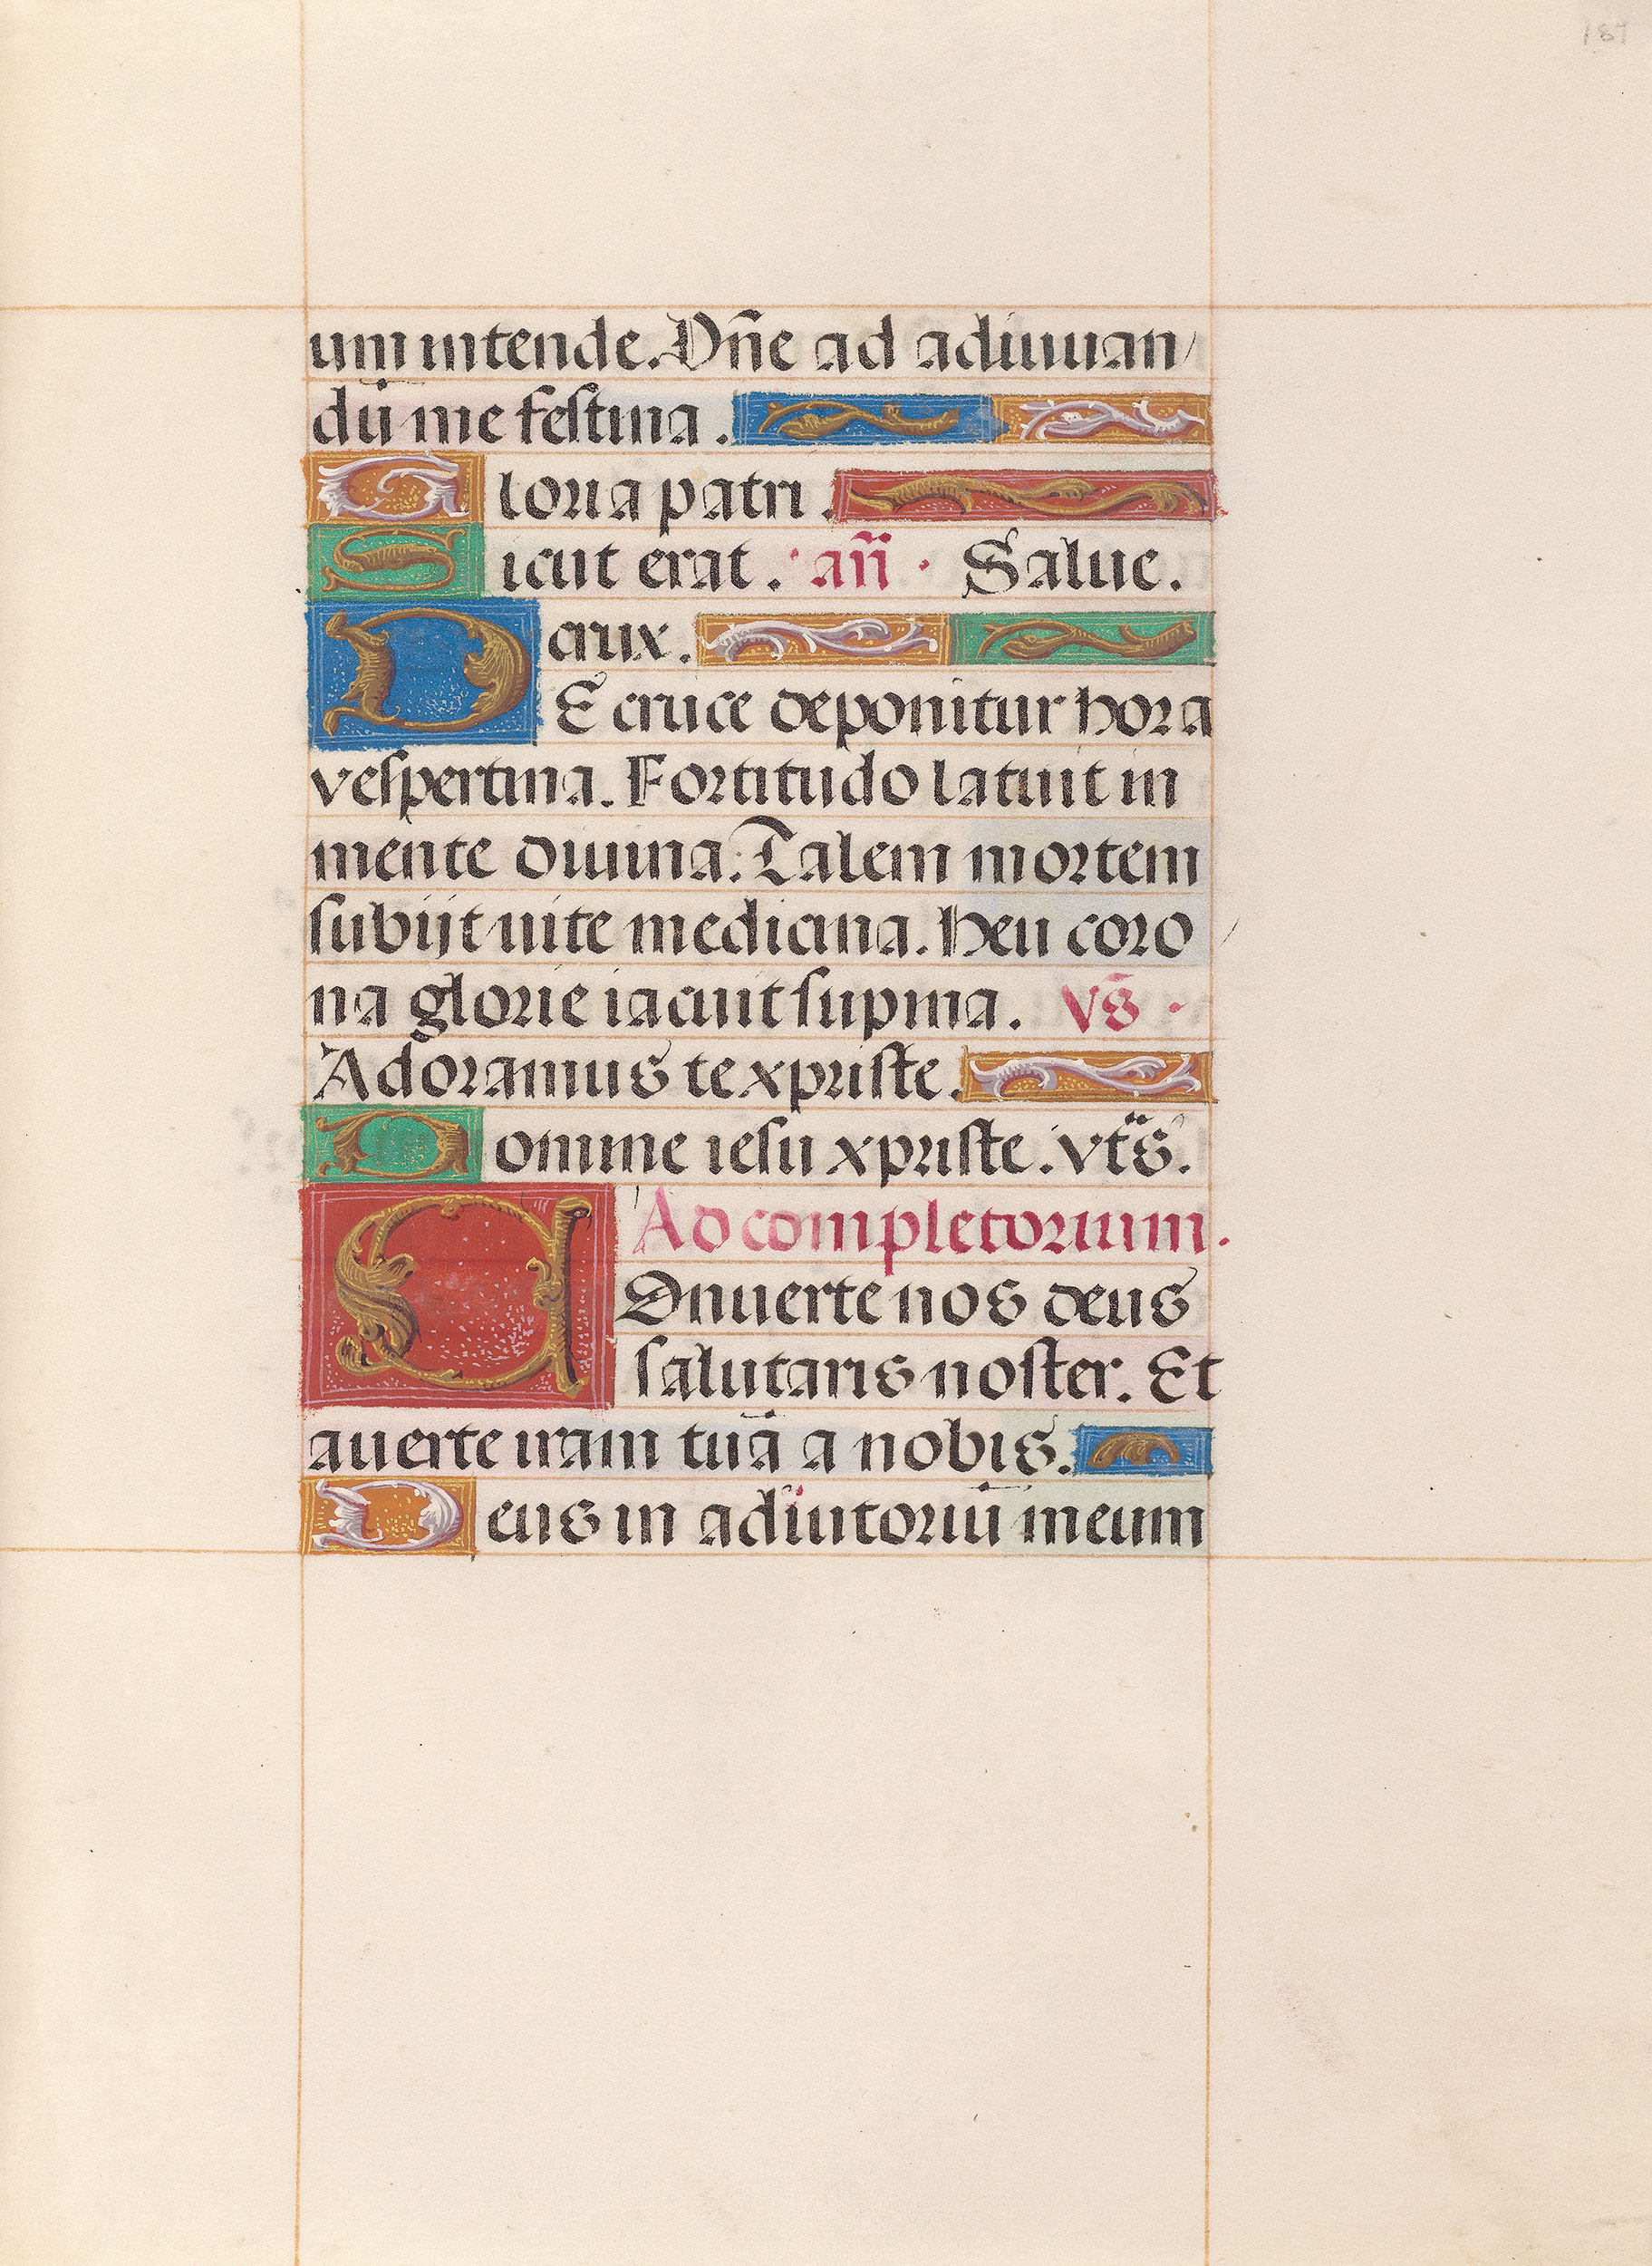 187
um intende. Dn̄e ad adiuuan/
dū me festina.
Gloria patri.
Sicut erat. an̄ · Salue.
crux.
DE cruce deponitur hora
vespertina. Fortitudo latuit in
mente diuina. Talem mortem
subijt uite medicina. heu coro/
na glorie iacuit supina. Vs̄ ·
Adoramus te xpriste.
Domine iesu xpriste. vts̄.
Ad completorium.
COnuerte nos deus
salutaris noster. Et
auerte iram tuā a nobis.
Deus in adiutoriū meum